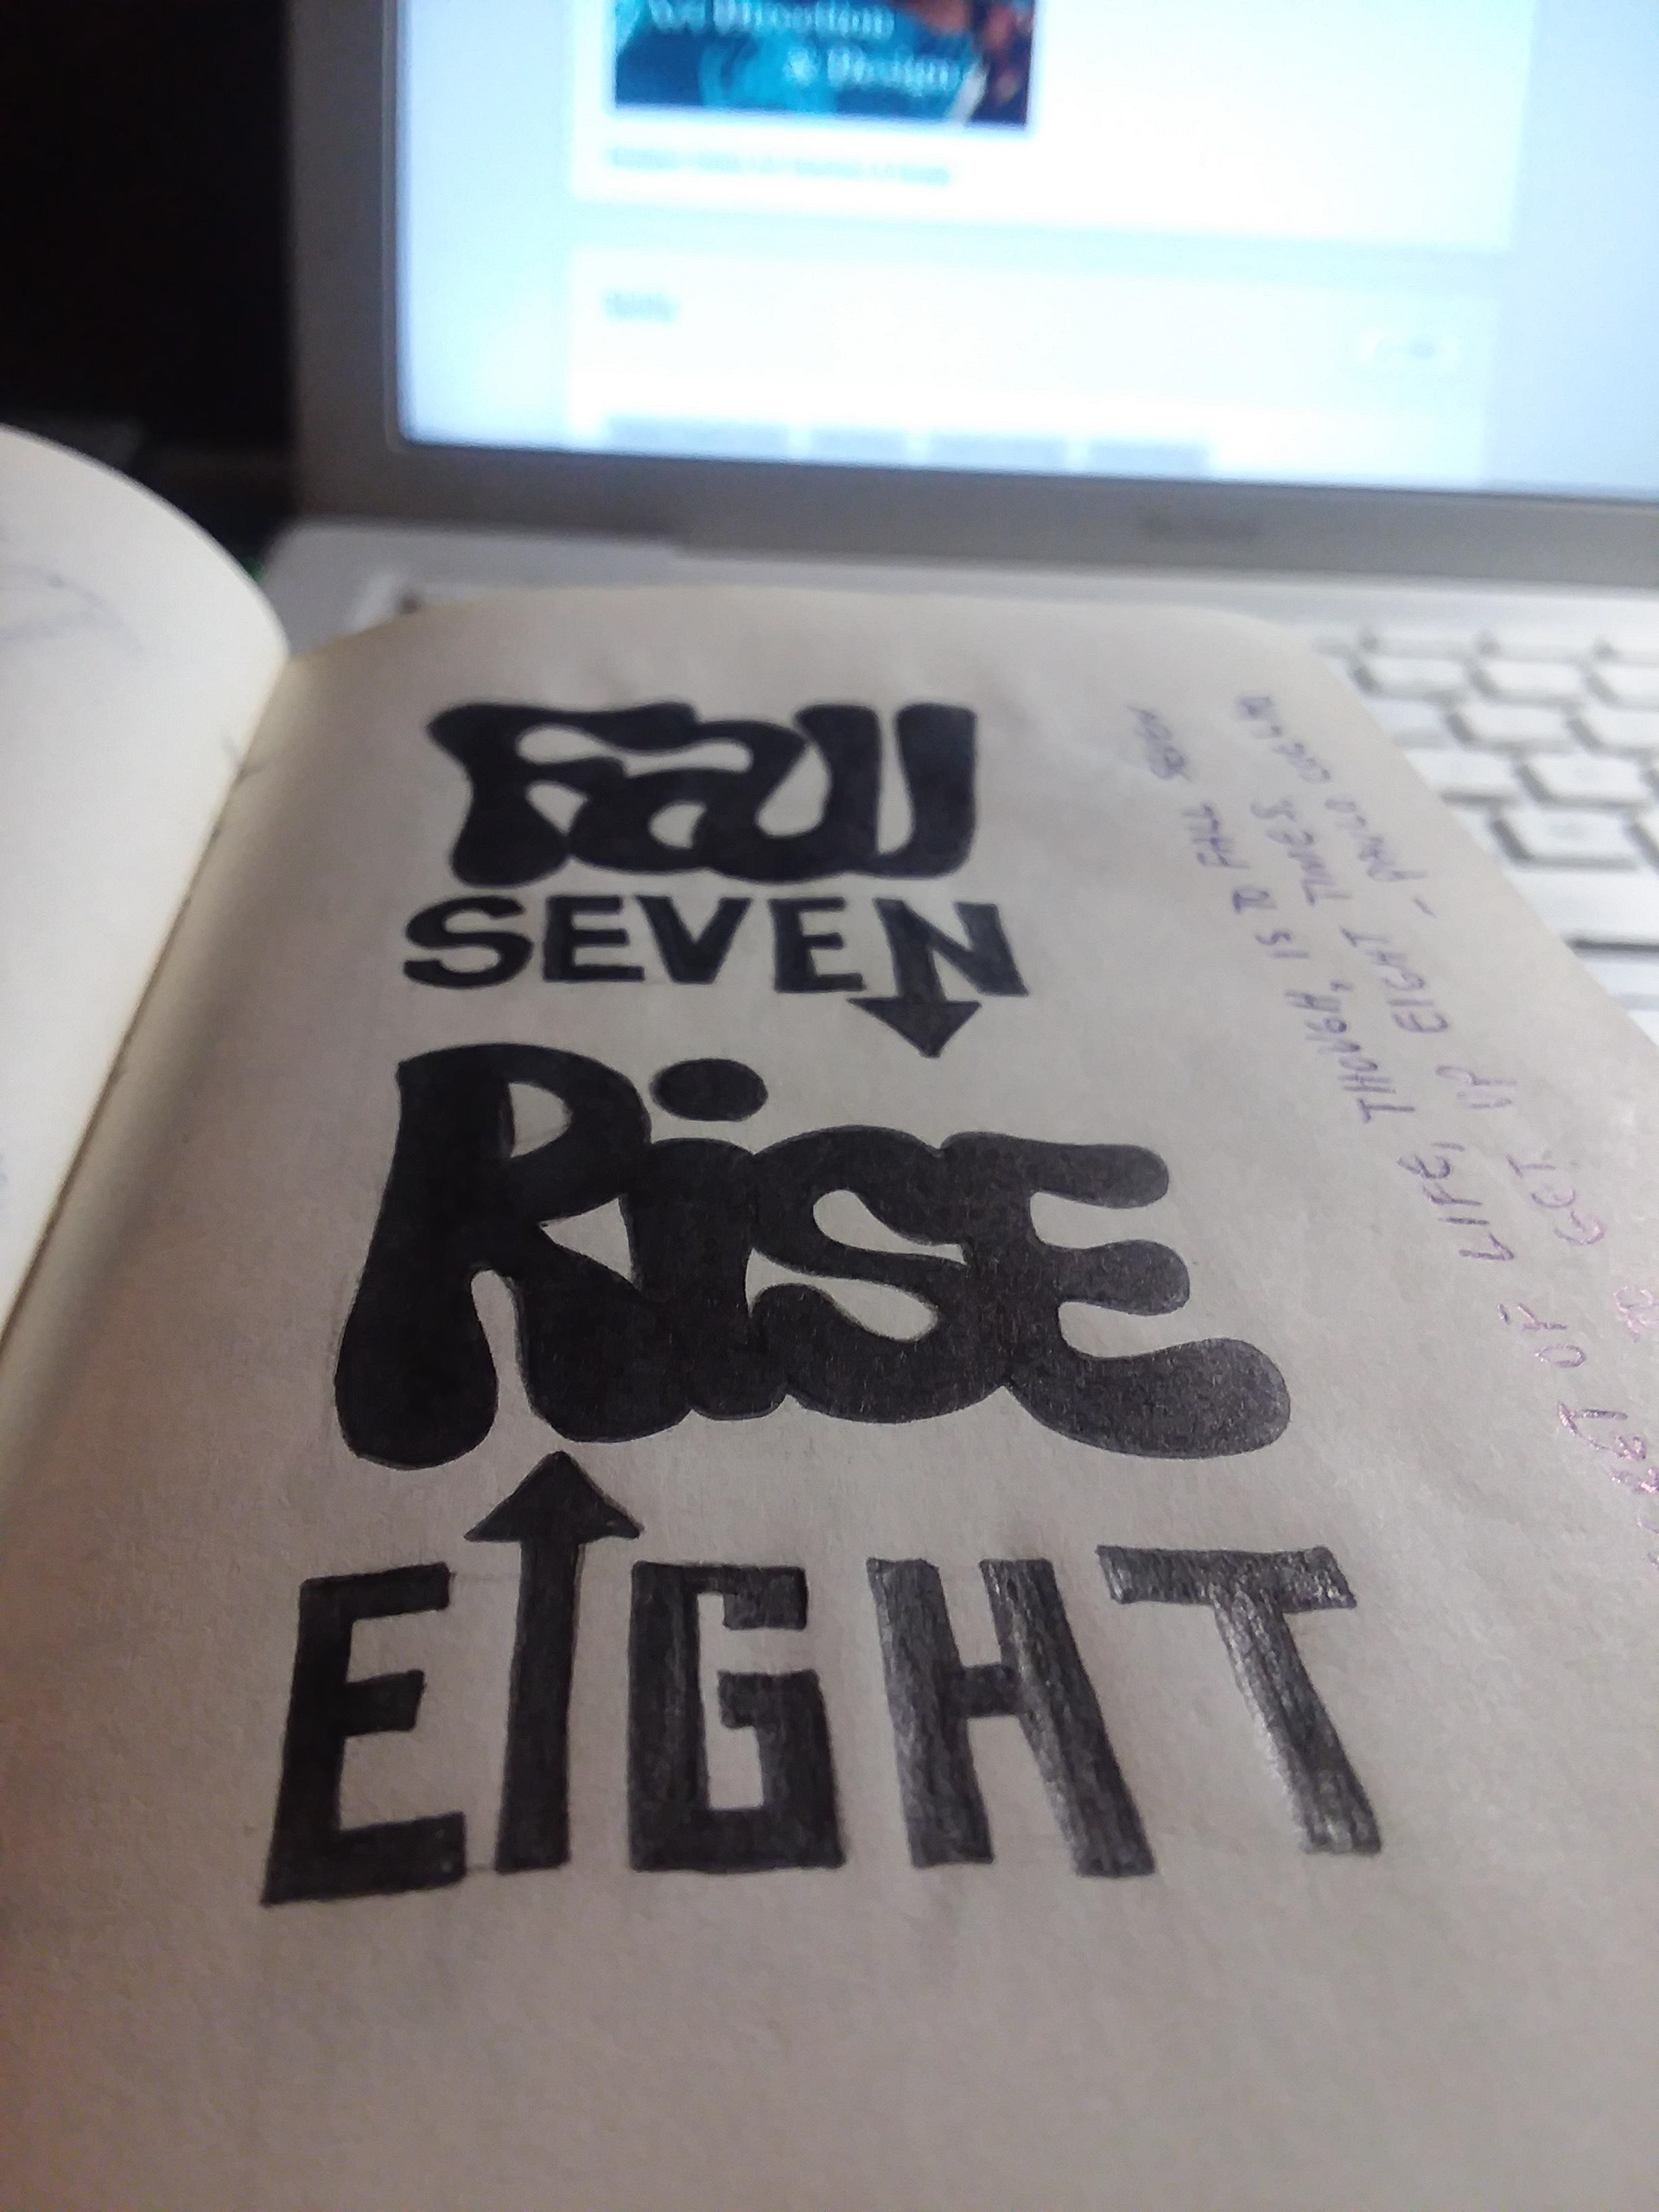 Art Direction
& Design
Fall
SEVEN
Rise
EIGHT
OF LIFE, THOUGH, IS TO FALL SEVEN
TO GET UP EIGHT TIMES.
- PAULO COELHO